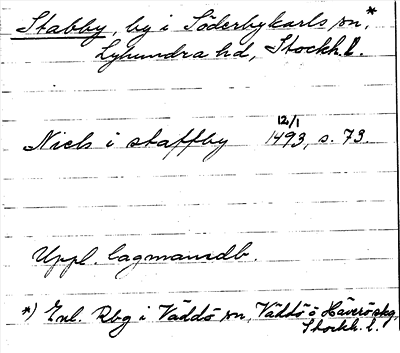 Stabby, by i Söderbykarls sn,*
Lyhundra hd, Stockh. l.
12/1
Niels i staffby 1493, s. 73.
Uppl. lagmansdb.
*) Enl. Rbg i Väddö sn, Väddö o Häverö skg,
Stockh. l.